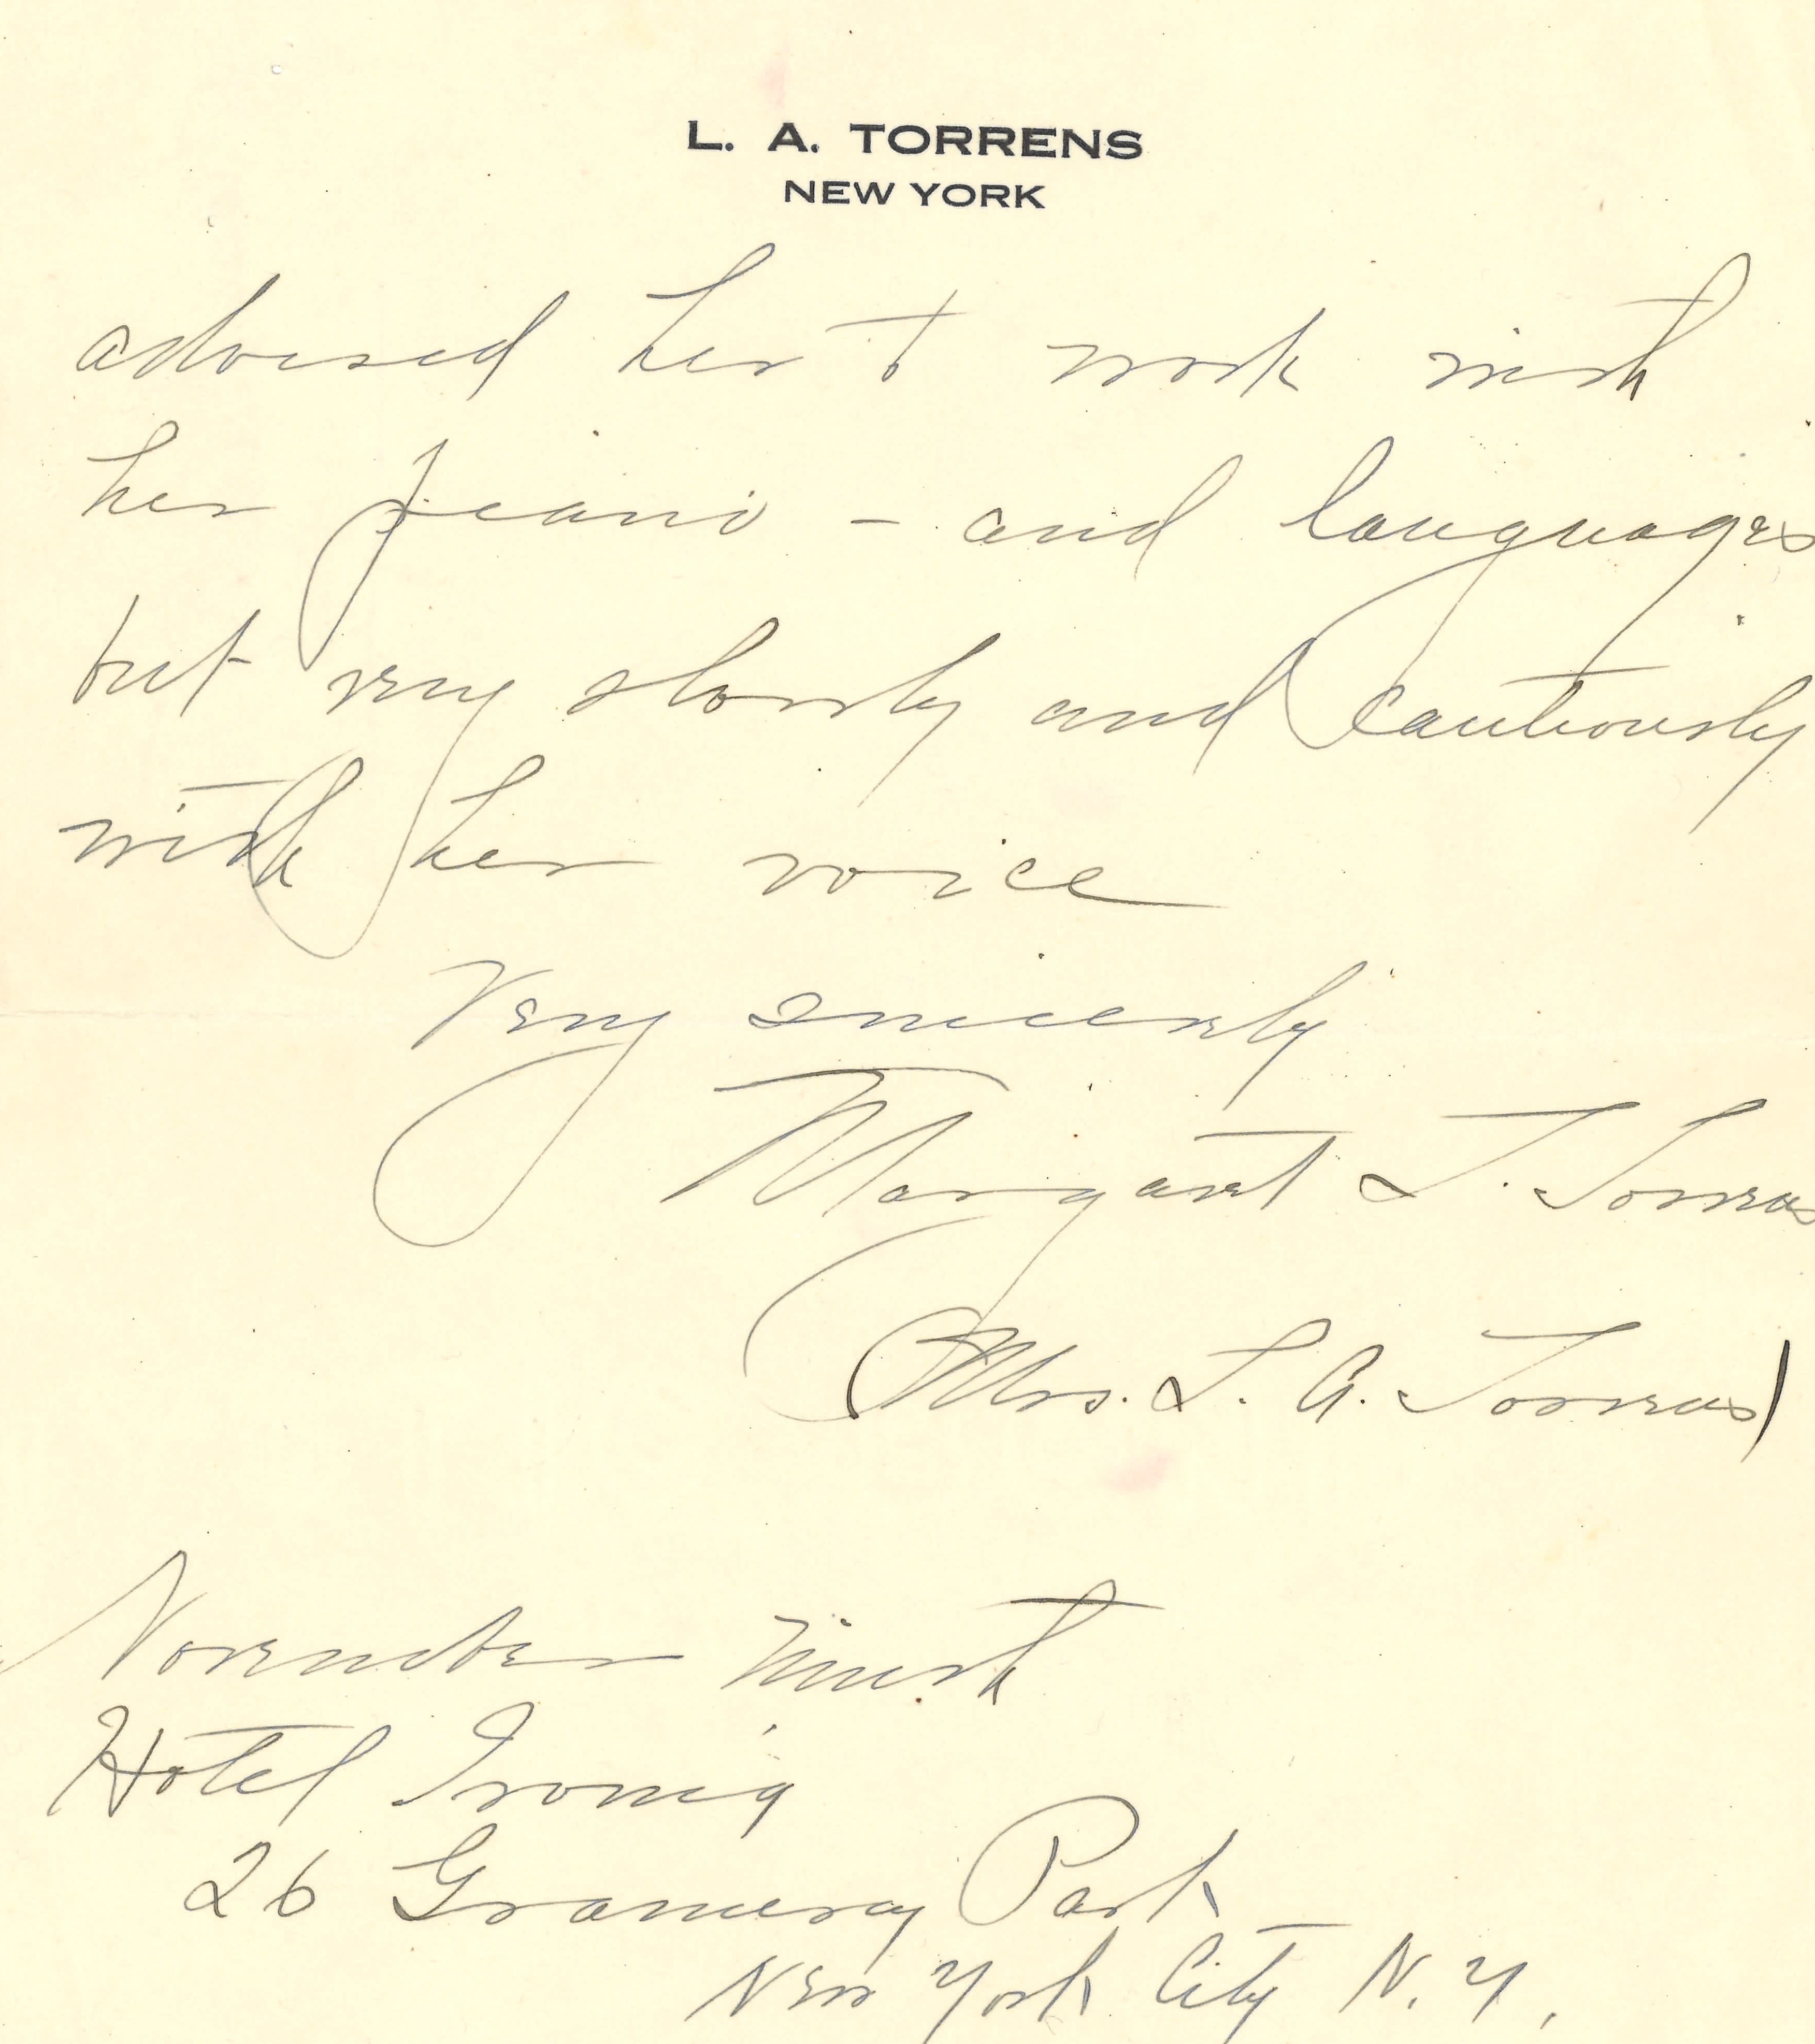 L. A. TORRENS
NEW YORK
advised her to work with
her piano - and languages
but very slowly and cautiously
with her voice
Very sincerely
Margaret L. Torrens
(Mrs. L. A. Torrens)
November ninth
Hotel Irving
26 Gramercy Park
New York City N.Y.